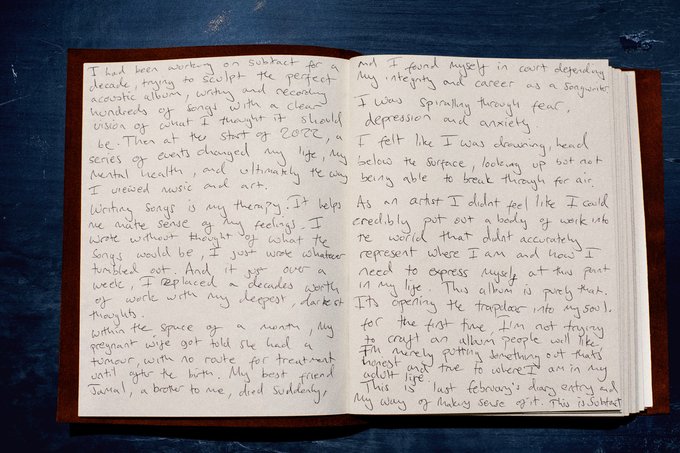 I had been working on subtract for a
decade, trying to sculpt the perfect
acoustic album, writing and recording
hundreds of songs with a clear
vision of what I thought it should
be. Then at the start of 2022, a
series of events changed my life, my
mental health, and ultimately the way
I viewed music and art.
Writing songs is my therapy. It helps
me make sense of my feelings. I
wrote without thought of what the
songs would be, I just wrote whatever
tumbled out. And it just over a
week, I replaced a decades worth
of work with my deepest, darkest
thoughts.
Within the space of a month, my
pregnant wife got told she had a
tumour, with no route for treatment
until after the birth. My best friend
Jamal, a brother to me, died suddenly,
and I found myself in court defending
my integrity and career as a songwriter
I was spiralling through fear,
depression and anxiety
I felt like I was drowning, head
below the surface, looking up but not
being able to break through for air.
As an artist I didnt feel like I could
credibly put out a body of work into
te world that didnt accurately
represent where I am and how I
need to express myself at this point
in my life. This album is purely that.
Its opening the trapdoor into my soul.
for the first time, I'm not trying
to craft an album people will like
I'm merely putting something out thats
honest and true to where I am in my
adult life.
This is last february's diary entry and
my way of making sense of it. This is Subtract